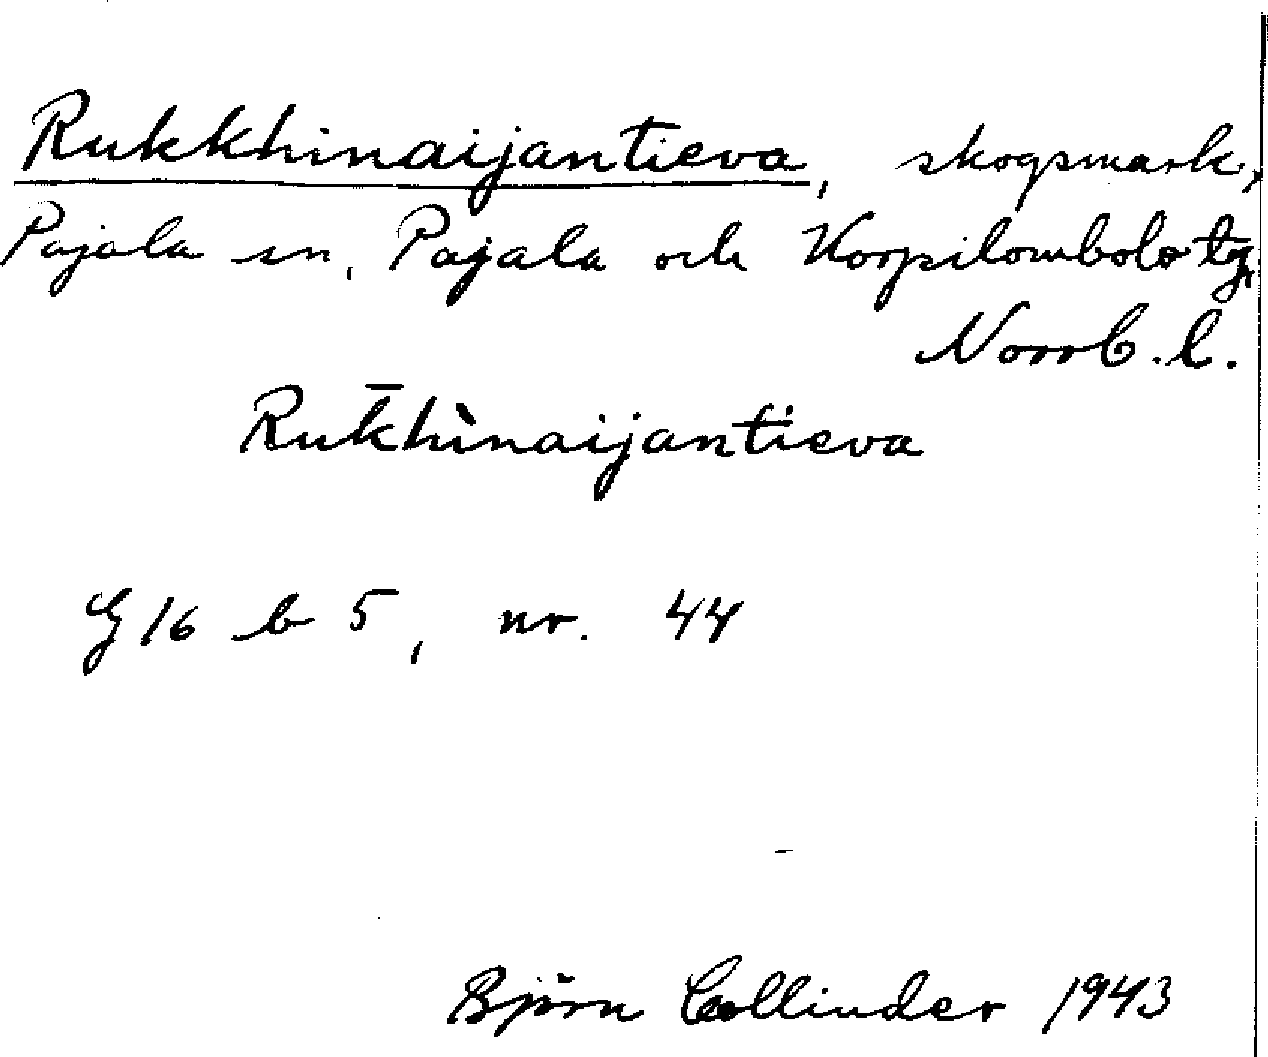 Rukkhinaijantieva, skogsmark,
Pajala sn, Pajala och Korpilombolo tg,
Norrb. l.
Ruk̄hìnaijantieva
G 16 b 5, nr. 44
Björn Collinder 1943